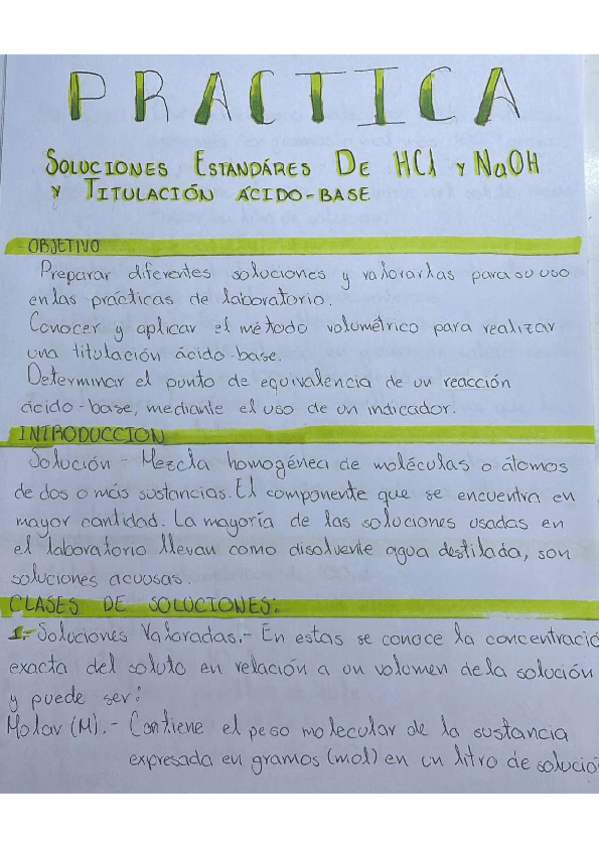 PRACTICA
SOLUCIONES ESTANDÁRES DE HCl Y NaOH
Y TITULACIÓN ÁCIDO-BASE
OBJETIVO
Preparar diferentes soluciones y valorarlas para su uso
en las prácticas de laboratorio.
Conocer y aplicar el método volumétrico para realizar
una titulación ácido-base.
Determinar el punto de equivalencia de un reacción
ácido-base, mediante el uso de un indicador.
INTRODUCCION
Solución - Mezcla homogénea de moléculas o átomos
de dos o más sustancias. El componente que se encuentra en
mayor cantidad. La mayoría de las soluciones usadas en
el laboratorio llevan como disolvente agua destilada, son
soluciones acuosas.
CLASES DE SOLUCIONES:
1.- Soluciones Valoradas.- En estas se conoce la concentració
exacta del soluto en relación a un volumen de la solución
y puede ser:
Molar (M).- Contiene el peso molecular de la sustancia
expresada en gramos (mol) en un litro de solucio